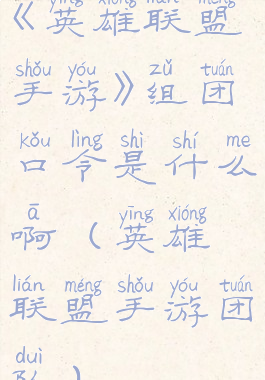 yīng xióng lián méng
《英雄联盟
shǒu yóu zǔ tuán
手游》组团
kǒu lìng shì shí me
口令是什么
ā yīng xióng
啊（英雄
lián méng shǒu yóu tuán
联盟手游团
duì
队）